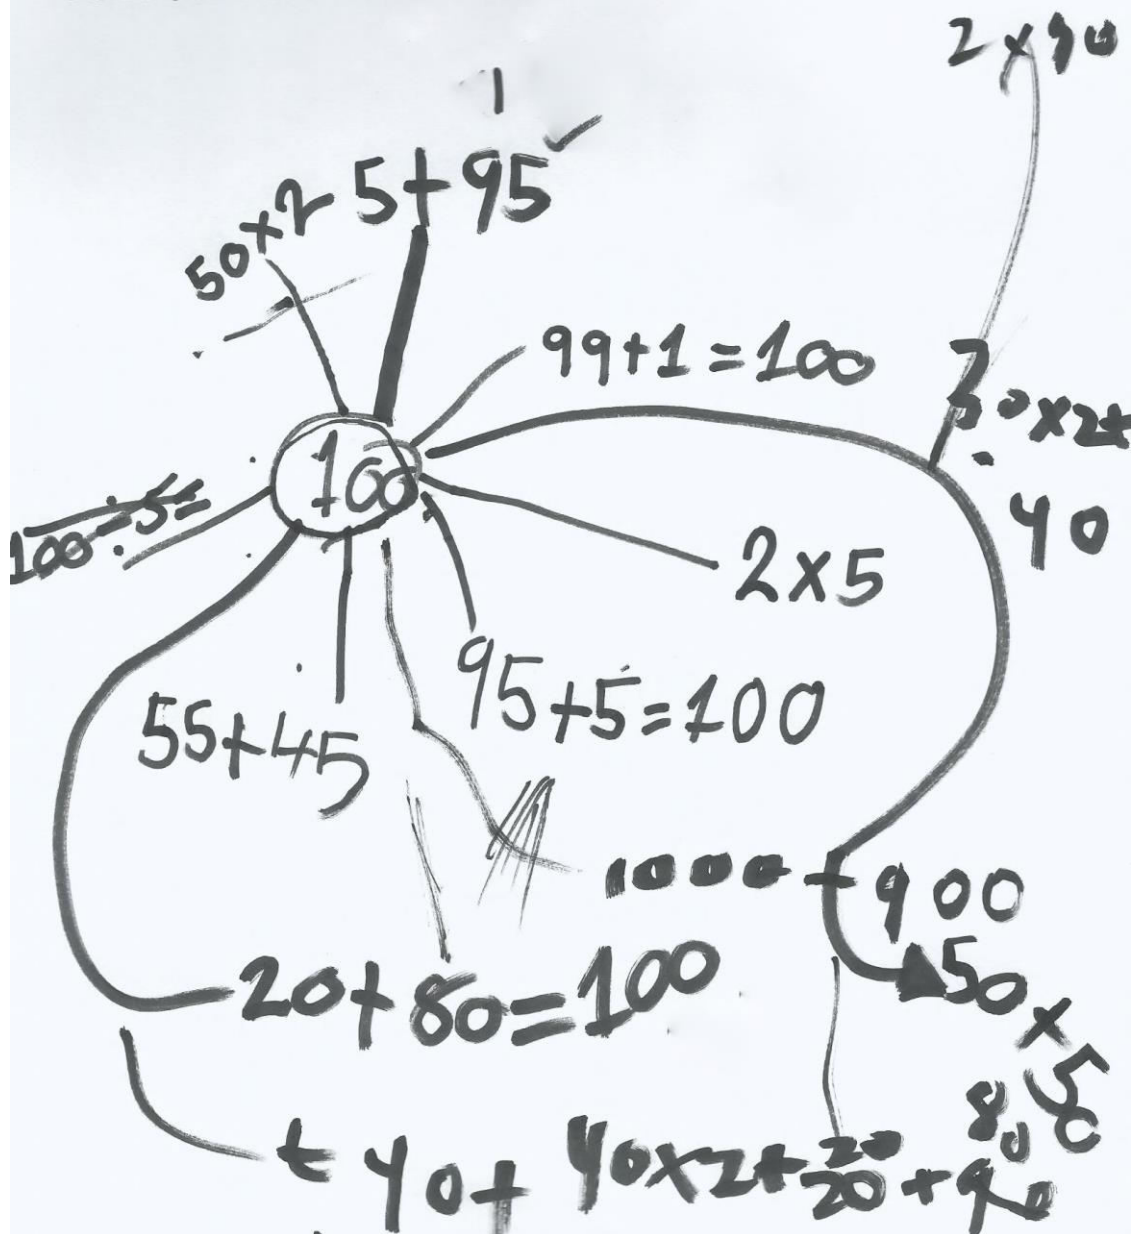 2 x 90
1
5+95
50x2
99+1=100
30x2+
40
100-5=
100
2x5
95+5=100
55+45
1000-900
50x50
20+80=100
80
+ 40+ 40x2+20
20+90